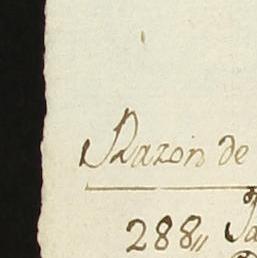 Razon de
288,,